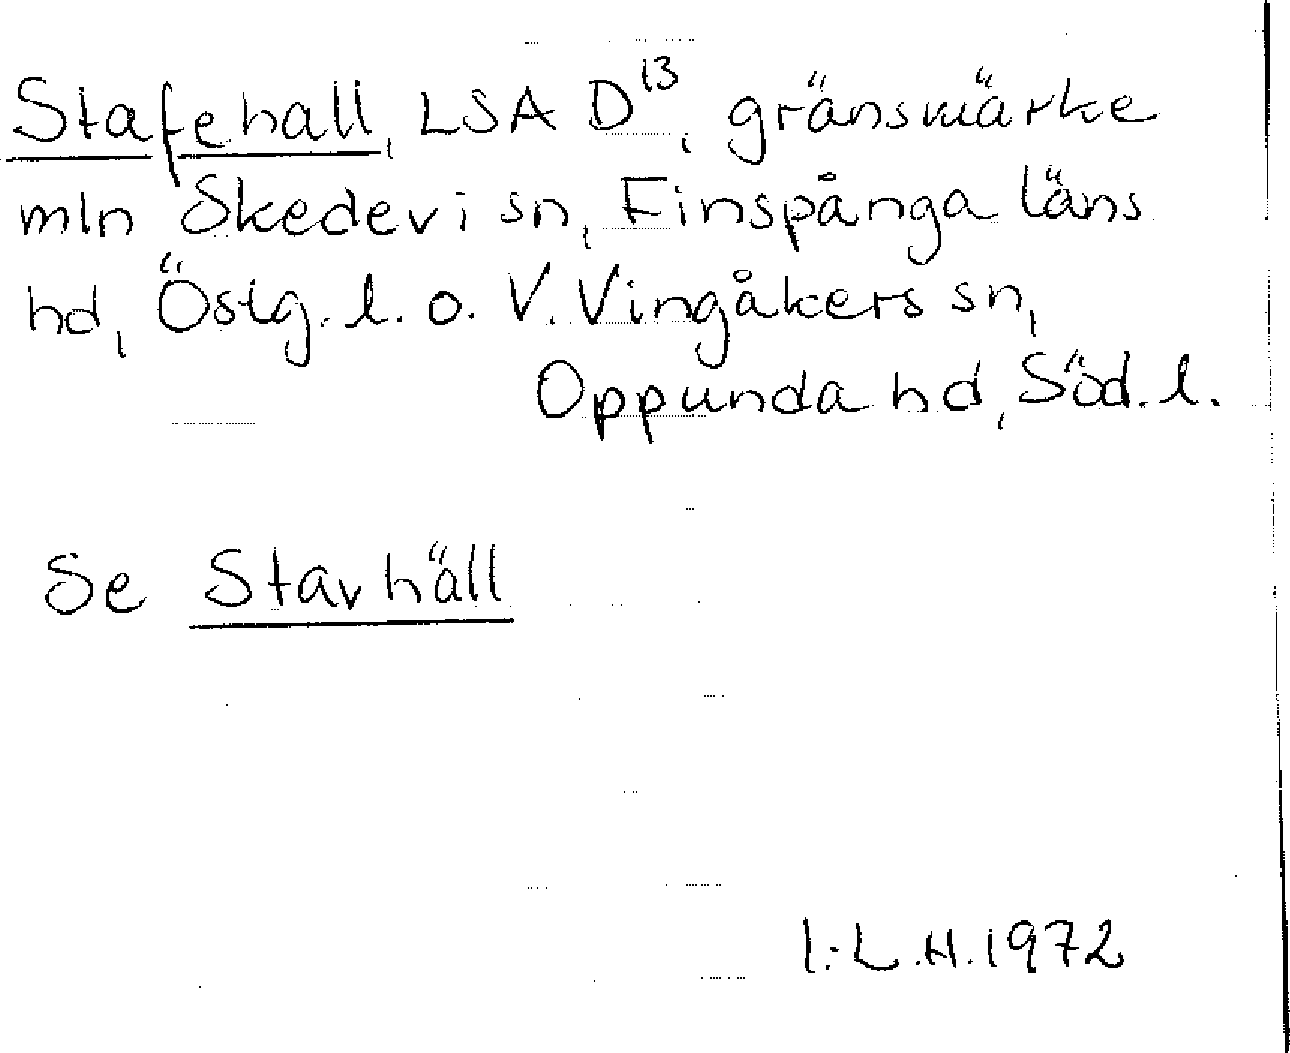 Stafehall, LSA D¹³, gränsmärke
mln Skedevi sn, Finspånga läns
hd, Östg. l. o. V. Vingåkers sn,
Oppunda hd, Söd. l.
Se Stavhäll
I.-L.H. 1972